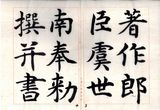 著作郎
臣虞世
南奉勑
撰并書